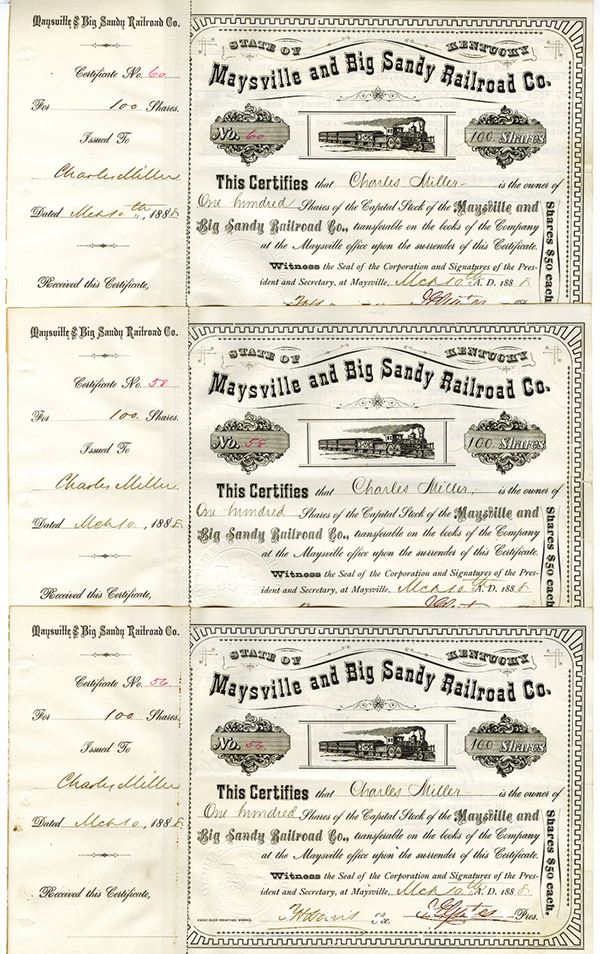 Maysville & Big Sandy Railroad Co.
Certificate No. 60
For 100 Shares.
Issued To
Charles Miller
Dated Mch 10th, 1888
Received this Certificate,
STATE OF KENTUCKY
Maysville and Big Sandy Railroad Co.
No. 60 100 Shares
This Certifies that Charles Miller is the owner of
One hundred Shares of the Capital Stock of the Maysville and
Big Sandy Railroad Co., transferable on the books of the Company
at the Maysville office upon the surrender of this Certificate.
Shares $50 each.
Witness the Seal of the Corporation and Signatures of the Pres-
ident and Secretary, at Maysville, Mch 10th A. D. 1888
Maysville & Big Sandy Railroad Co.
Certificate No. 58
For 100 Shares.
Issued To
Charles Miller
Dated Mch 10, 1888
Received this Certificate,
STATE OF KENTUCKY
Maysville and Big Sandy Railroad Co.
No. 58 100 Shares
This Certifies that Charles Miller, is the owner of
One hundred Shares of the Capital Stock of the Maysville and
Big Sandy Railroad Co., transferable on the books of the Company
at the Maysville office upon the surrender of this Certificate.
Shares $50 each.
Witness the Seal of the Corporation and Signatures of the Pres-
ident and Secretary, at Maysville, Mch 10th A. D. 1888
Maysville & Big Sandy Railroad Co.
Certificate No. 56
For 100 Shares.
Issued To
Charles Miller
Dated Mch 10, 1888
Received this Certificate,
STATE OF KENTUCKY
Maysville and Big Sandy Railroad Co.
No. 56 100 Shares
This Certifies that Charles Miller is the owner of
One hundred Shares of the Capital Stock of the Maysville and
Big Sandy Railroad Co., transferable on the books of the Company
at the Maysville office upon the surrender of this Certificate.
Shares $50 each.
Witness the Seal of the Corporation and Signatures of the Pres-
ident and Secretary, at Maysville, Mch 10th A. D. 1888
EXCELSIOR PRINTING WORKS. Pres.